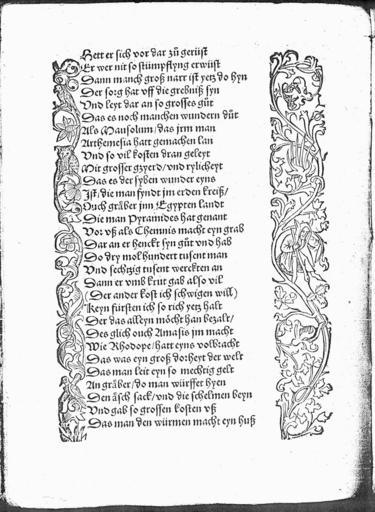 Hett er sich vor dar zů gerüst
Er wer nit so stümpflyng erwüst
Dann manch groß narr ist yetz do hyn
Der sorg hat vff die grebniß syn
Vnd leyt dar an so grosses gůt
Das es noch manchen wundern důt
Als Mausolum / das jrm man
Arthemesia hatt gemachen lan
Vnd so vil kosten dran geleyt
Mit grosser gzyerd / vnd rylicheyt
Das es der syben wunder eyns
Ist / die man fyndt jm erden kreiß /
Ouch gräber jnn Egypten landt
Die man Pyramides hat genant
Vor vß als Chemnis macht eyn grab
Dar an er henckt syn gůt vnd hab
Do dry mol hundert tusent man
Vnd sechtzig tusent werckten an
Dann er vmb krut gab also vil
(Der ander kost ich schwigen will)
Keyn fürsten ich so rich yetz halt
Der das alleyn möcht han bezalt /
Des glich ouch Amasis jm macht
Wie Rhodope / hatt eyns volbracht
Das was eyn groß dorheyt der welt
Das man leit eyn so mechtig gelt
An gräber / do man würffet hyen
Den äsch sack / vnd die schelmen beyn
Vnd gab so grossen kosten vß
Das man den würmen macht eyn huß